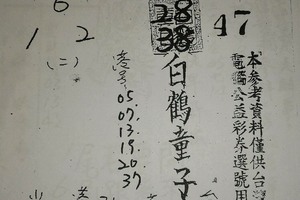 6
1 2
(二)
28
38
47
本參考資料僅供台灣
電腦公益彩券選號用
白鶴童子
港号
05.
07.
13.
19.
20.
37